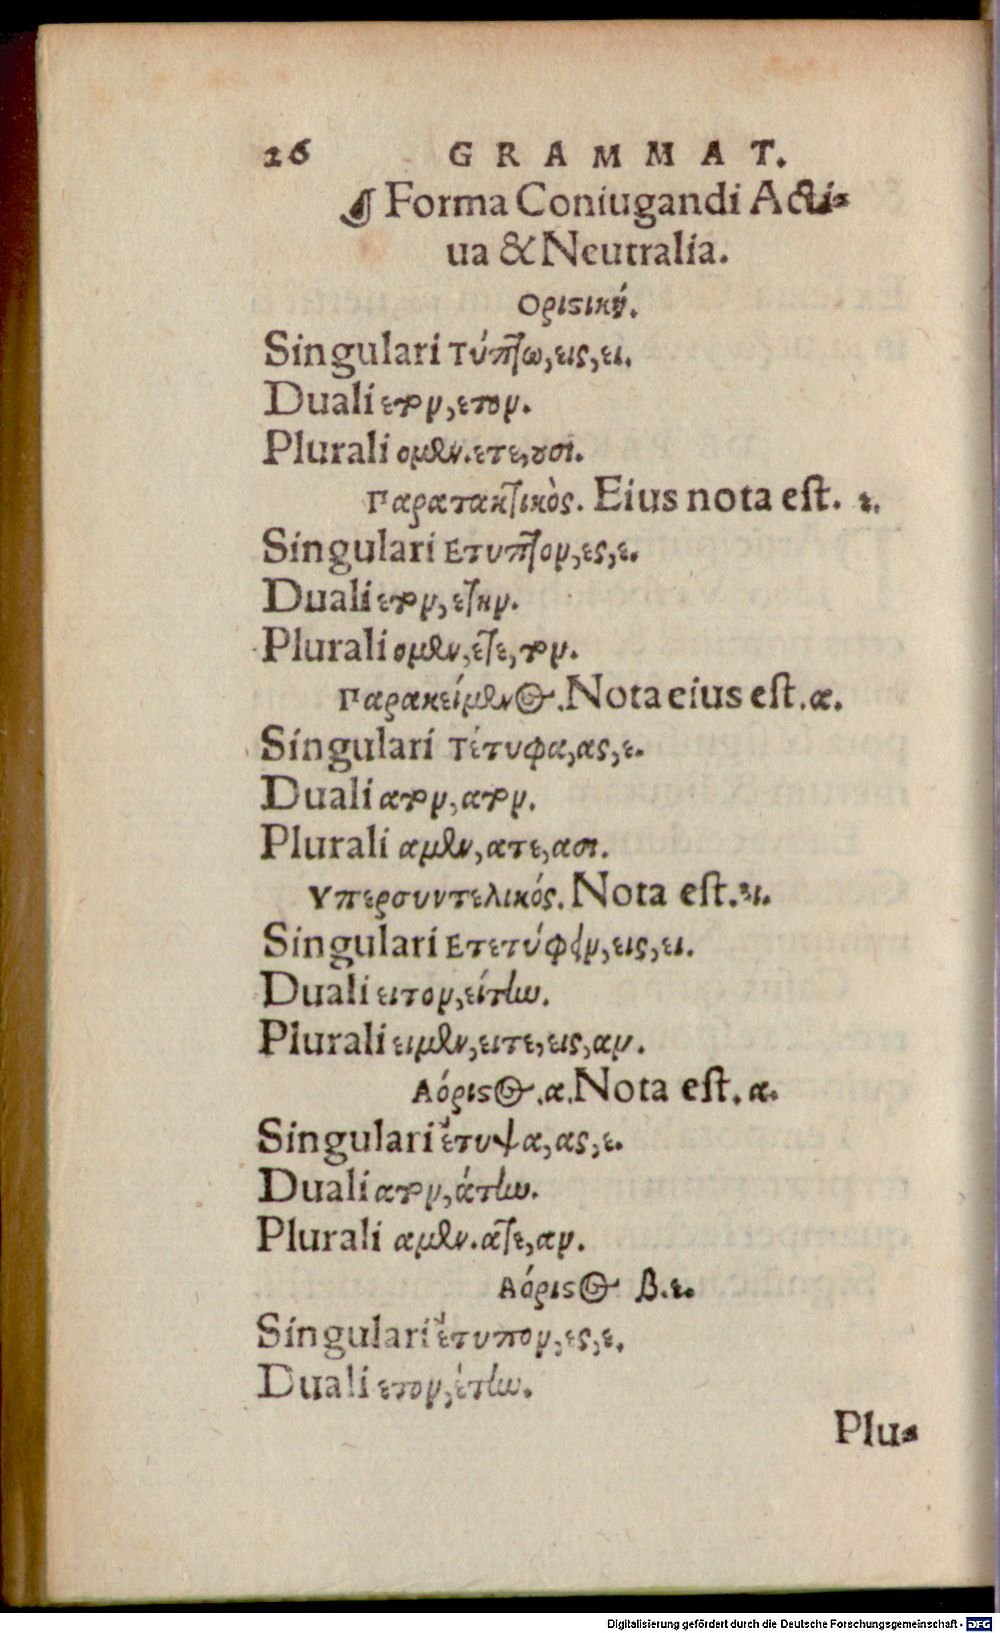 26 GRAMMAT.
¶ Forma Coniugandi Acti-
ua & Neutralia.
Οριστική.
Singulari Τύπτω, εις, ει.
Duali ετον, ετον.
Plurali ομεν. ετε, ουσι.
Παρατακτικὸς. Eius nota est. ε.
Singulari Ετυπτον, ες, ε.
Duali ετον, ετην.
Plurali ομεν, ετε, τον.
Παρακείμενος. Nota eius est. α.
Singulari Τέτυφα, ας, ε.
Duali ατον, ατον.
Plurali αμεν, ατε, ασι.
Υπερσυντελικός. Nota est. ει.
Singulari Ετετύφειν, εις, ει.
Duali ειτον, είτην.
Plurali ειμεν, ειτε, εις, αν.
Αόριστος. α. Nota est. α.
Singulari ἔτυψα, ας, ε.
Duali ατον, άτην.
Plurali αμεν. ατε, αν.
Αόριστος β. ε.
Singulari ἔτυπον, ες, ε.
Duali ετον, έτην.
Plu-
Digitalisierung gefördert durch die Deutsche Forschungsgemeinschaft - DFG